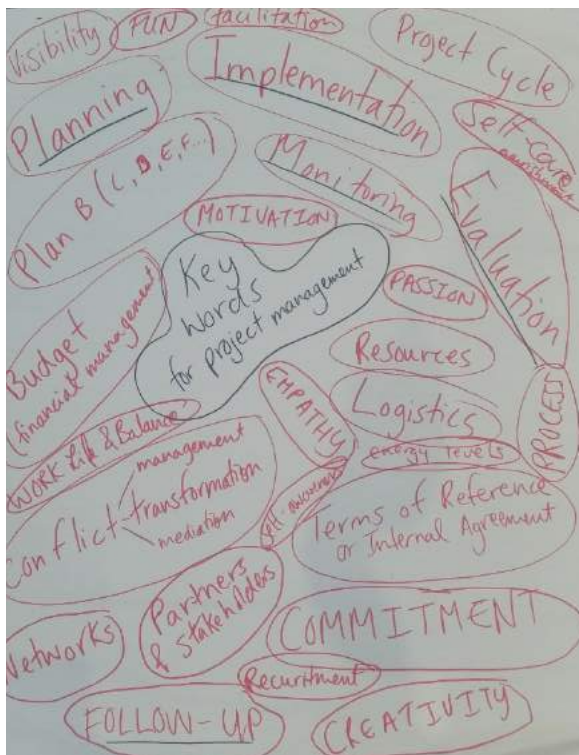 Visibility
FUN
facilitation
Project Cycle
Planning
Implementation
Self-care
nourishment
Plan B (C, D, E, F...)
Monitoring
Evaluation
MOTIVATION
Key
words
for project management
PASSION
Budget
(financial management)
Resources
EMPATHY
Logistics
PROCESS
WORK Life & Balance
energy levels
Conflict
management
transformation
mediation
self-awareness
Terms of Reference
or Internal Agreement
Partners
& Stakeholders
COMMITMENT
Networks
Recuritment
FOLLOW-UP
CREATIVITY